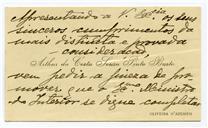 Apresentando a V. Ex.cia os seus
sinceros cumprimentos da
mais distinta e provada
consideração,
Arthur da Costa Souza Pinto Basto
vem pedir a fineza de pro-
mover que o Ex.mo Ministro
do Interior se digne completar
OLIVEIRA D'AZEMEIS